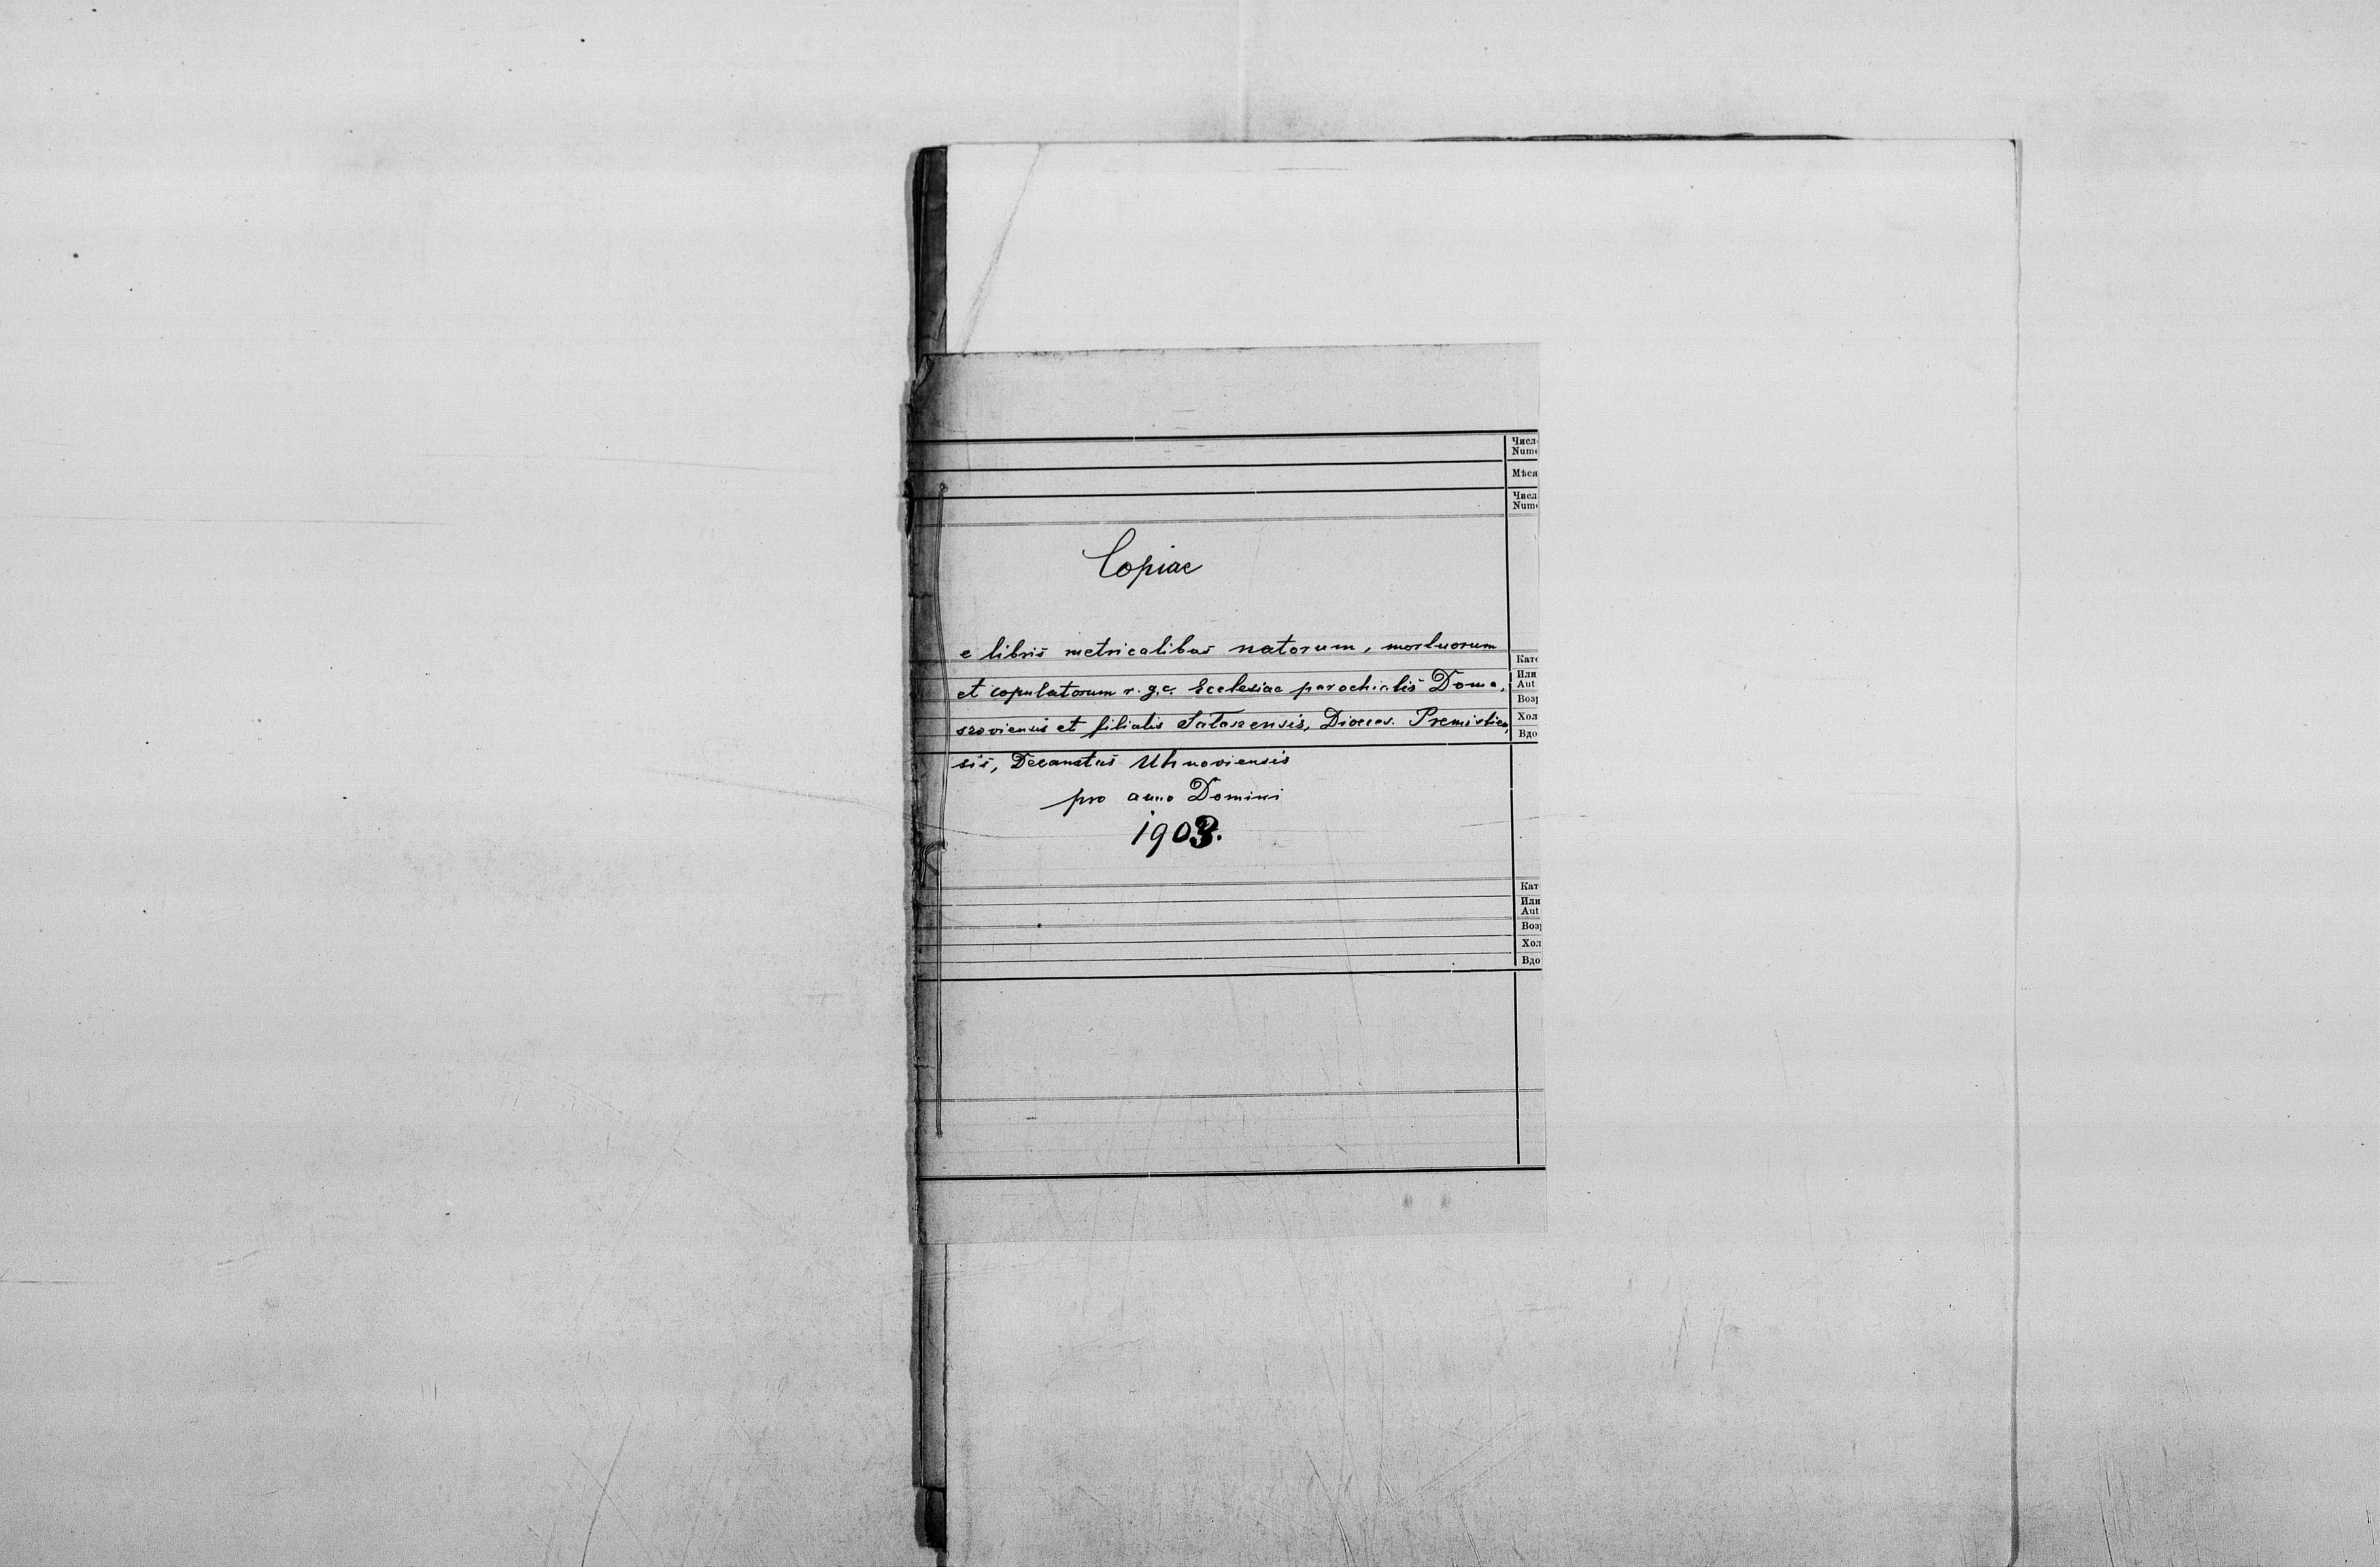 Числ
Nume
Мѣся
Числ
Nume
Copiae
e libris metricalibus natorum, mortuorum
et copulatorum r. g. c. Ecclesiae parochialis Doma,
szoviensis et filialis Dioeces. Premislien,
sis, Decanatus Uhnoviensis
pro anno Domini
1903.
Като
Или
Aut
Возр
Хол
Вдо
Кат
Или
Aut
Возр
Хол
Вдо